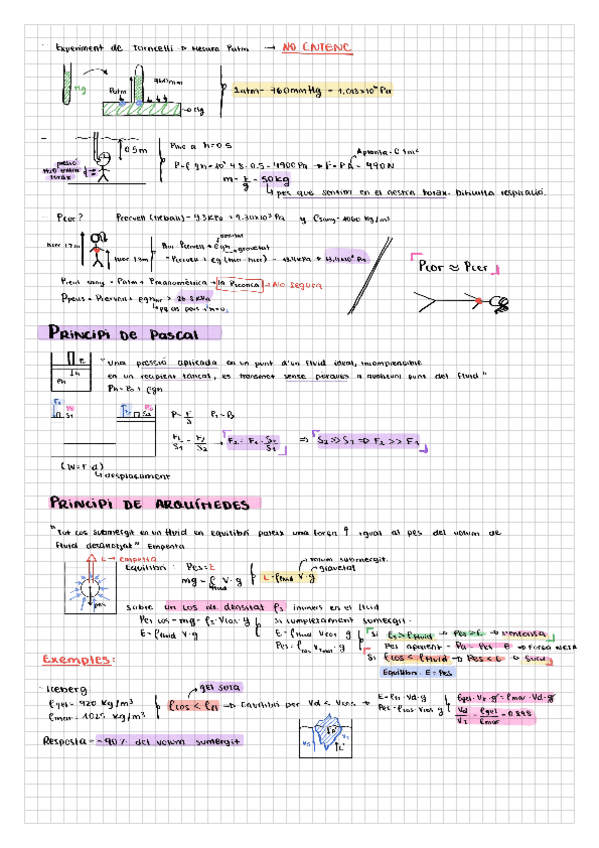 Experiment de Torricelli → Mesura Patm → NO ENTENC
760mm
Hg
Patm
Hg
1atm = 760mmHg = 1,013×10⁵ Pa
0.5m
Prac a h=0.5
P=ρgh=10³·9.8·0.5=4900Pa → F=P·A=490N
m=F/g=50Kg
pes que sentim en el nostre tòrax. Dificulta respiració.
Pcor?
Pcervell (treball) = 9.3KPa = 9.30×10³Pa y ρsang = 1060 Kg/m³
gravetat
= 13.1×10³ Pa
Pcor ≈ Pcer
Preal sang = Patm + Pmanomètrica → la Pconeca → No segura
Ppeus = Pcervell + ρghcer = 26.8KPa
PRINCIPI DE PASCAL
"Una pressió aplicada en un punt d'un fluid ideal, incompressible
en un recipient tancat, es transmet sense pèrdues a qualsevol punt del fluid"
Ph = P0 + ρgh
P=F/S P1=P2
F1/S1 = F2/S2 → F2 = F1·S2/S1 ⇒ S2>>S1 ⇒ F2>>F1
(W=F·d)
desplaçament
PRINCIPI DE ARQUÍMEDES
"Tot cos submergit en un fluid en equilibri pateix una força ↑ igual al pes del volum de
fluid desallotjat" Empenta
E → empenta
pes
Equilibri: Pes=E
mg = ρfluid V·g
E=ρfluid V·g
volum submergit
gravetat
Sobre un cos de densitat ρs immers en el fluid
Pes cos = mg = ρs·Vcos·g
E=ρfluid V·g
Si completament submergit
E=ρfluid Vcos g
Pes=ρcos Vcos g
Si ρs>ρfluid → Pes>E → s'enfonsa
Pes aparent = Pa = Pes - E → Força neta
Si ρcos<ρfluid → Pes<E → Sura
Equilibri: E=Pes
Exemples:
Iceberg
ρgel = 920 Kg/m³
ρmar = 1025 Kg/m³
gel sura
ρcos<ρfl → Equilibri per Vd<Vcos →
E=ρfl·Vd·g
Pes=ρcos·Vcos g
ρgel·VT·g=ρmar·Vd·g
Vd/VT = ρgel/ρmar = 0.898
Resposta = ~90% del volum submergit